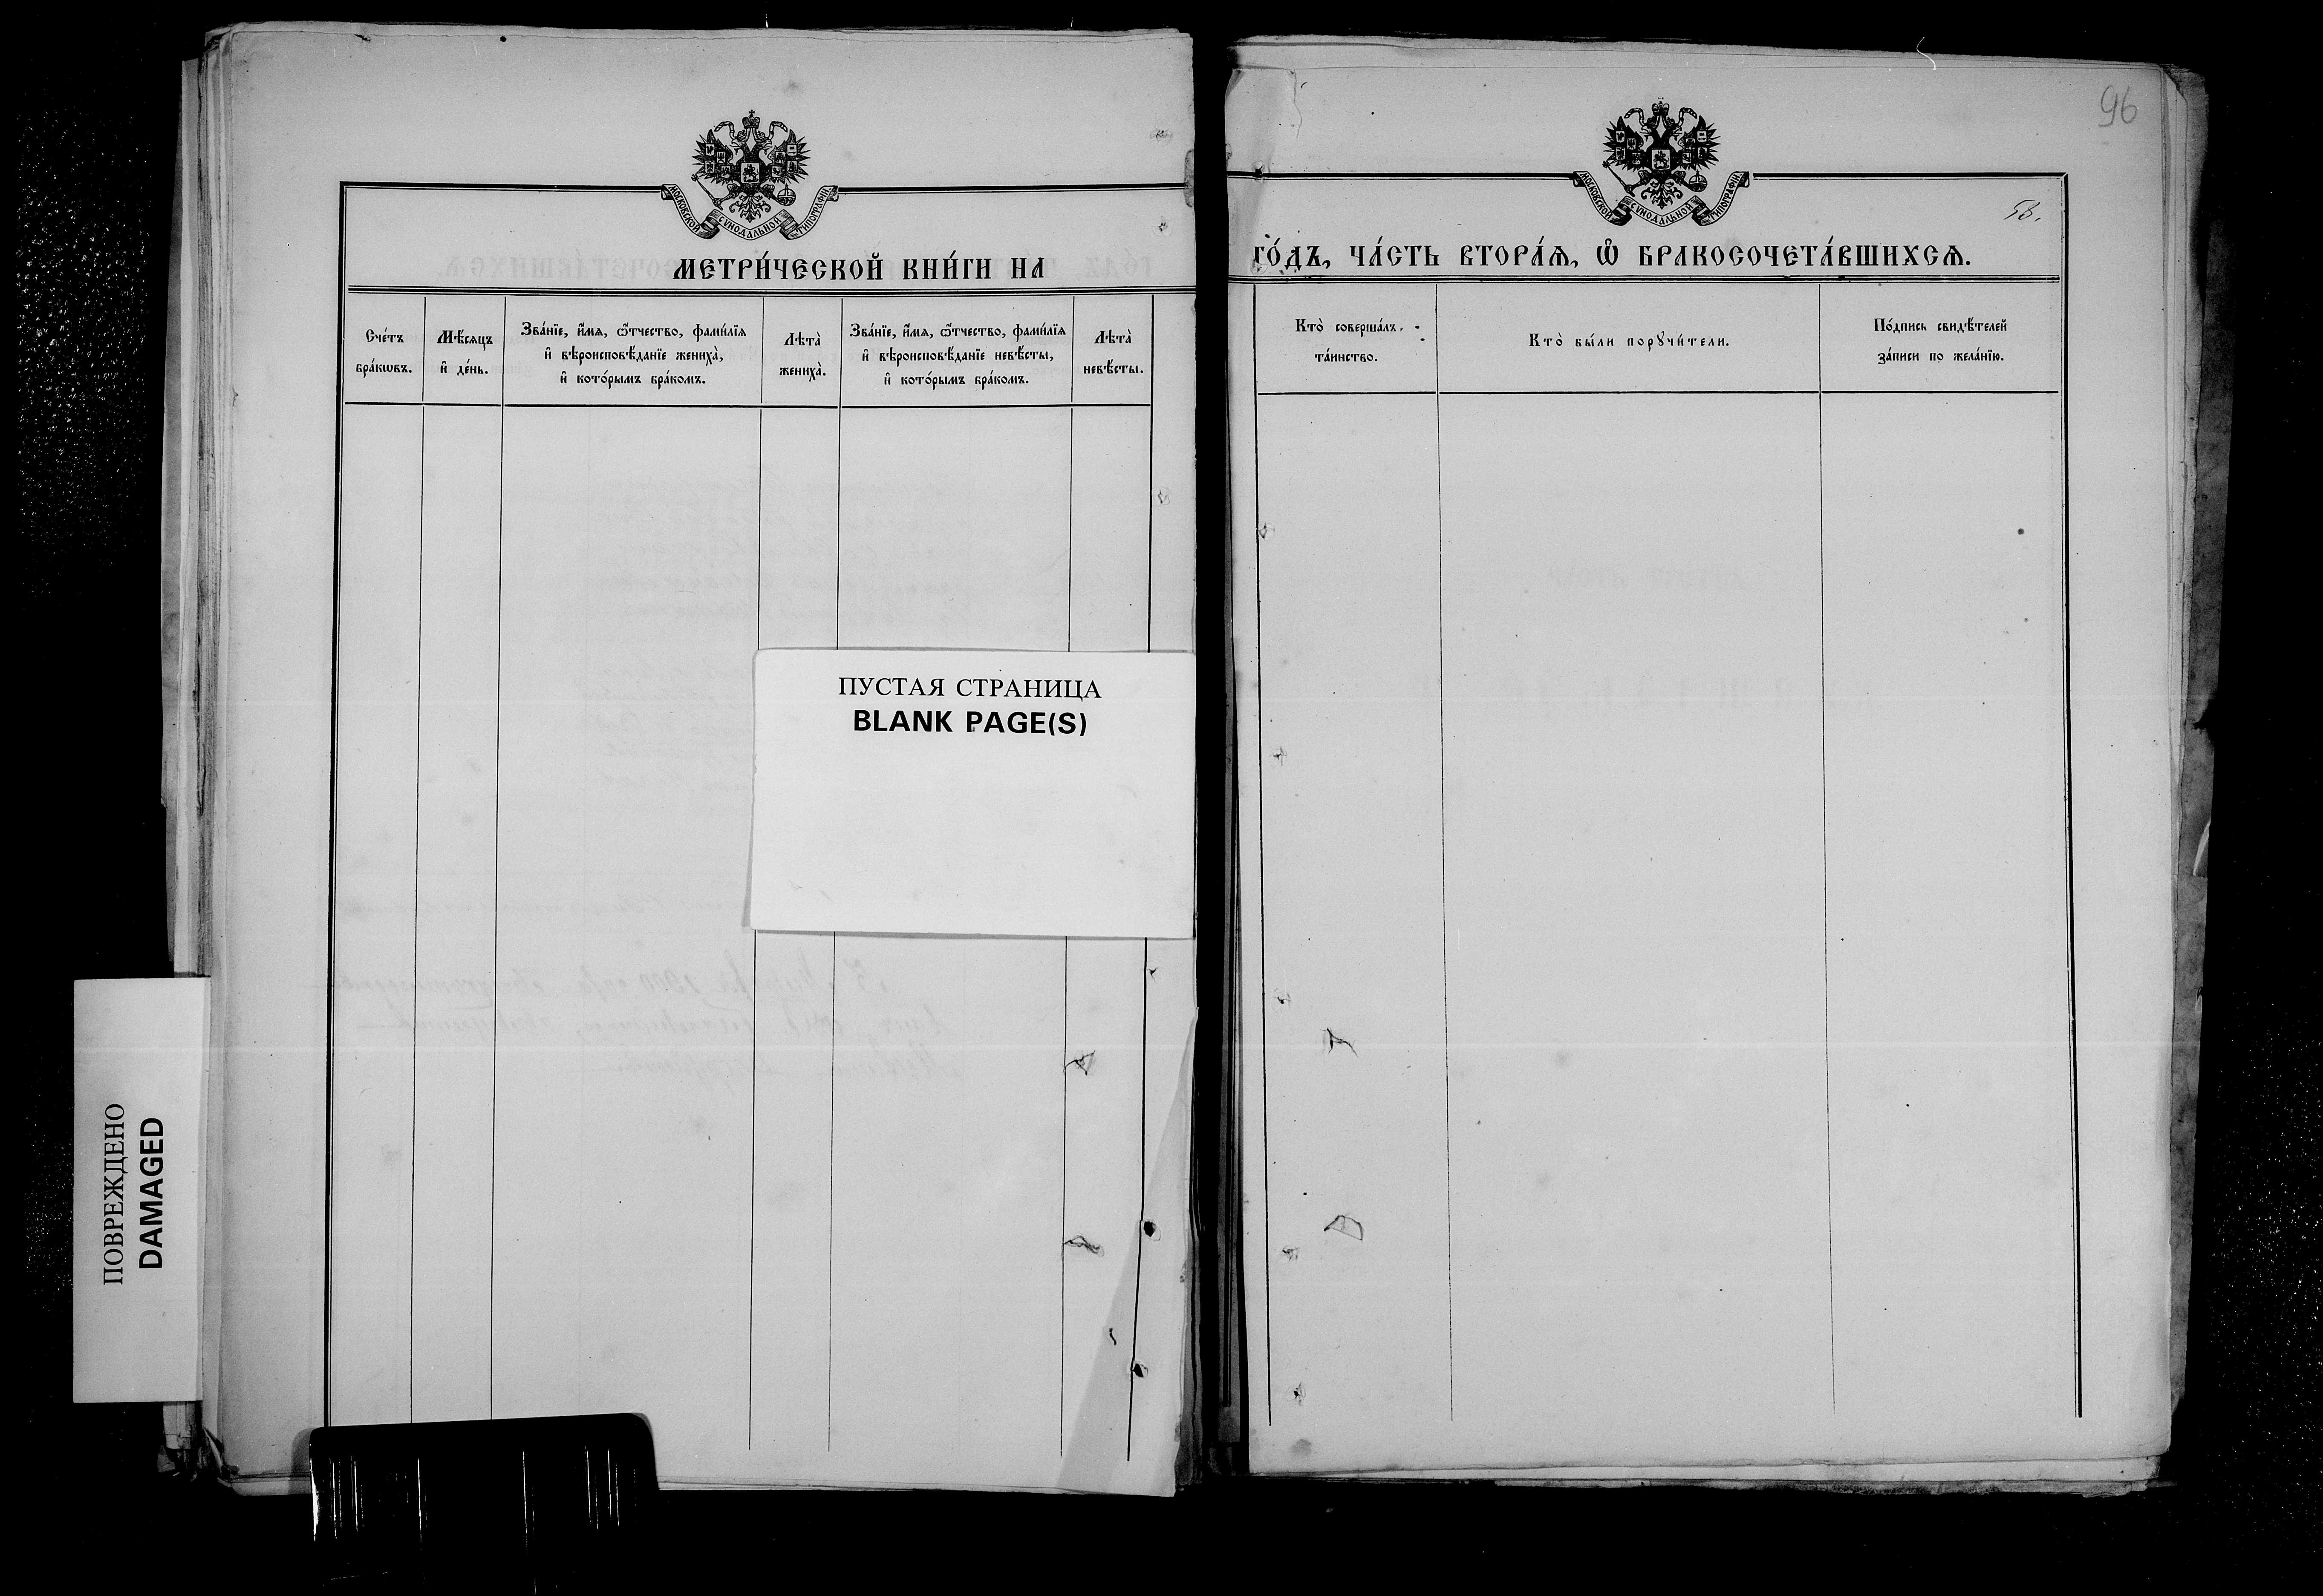 96
МОСКОВСКОЙ СУНОДАЛЬНОЙ ТИПОГРАФІИ
МОСКОВСКОЙ СУНОДАЛЬНОЙ ТИПОГРАФІИ
МЕТРИ́ЧЕСКОЙ КНИ́ГИ НА
ГО́ДЪ, ЧА́СТЬ ВТОРА́Ѧ, Ѽ БРАКОСОЧЕТА́ВШИХСѦ.
Сче́тъ
бра́кѡвъ.
Мѣ́сяцъ
и҆ де́нь.
Зва́нїе, и҆́мя, ѻ҆́тчество, фами́лїя
и҆ вѣроисповѣ́данїе жениха̀,
и҆ кото́рымъ бра́комъ.
Лѣта̀
жениха̀.
Зва́нїе, и҆́мя, ѻ҆́тчество, фами́лїя
и҆ вѣроисповѣ́данїе невѣ́сты,
и҆ кото́рымъ бра́комъ.
Лѣта̀
невѣ́сты.
Кто̀ соверша́лъ
та́инство.
Кто̀ бы́ли порꙋчи́тели.
По́дпись свидѣ́телей
за́писи по жела́нїю.
ПУСТАЯ СТРАНИЦА
BLANK PAGE(S)
ПОВРЕЖДЕНО
DAMAGED